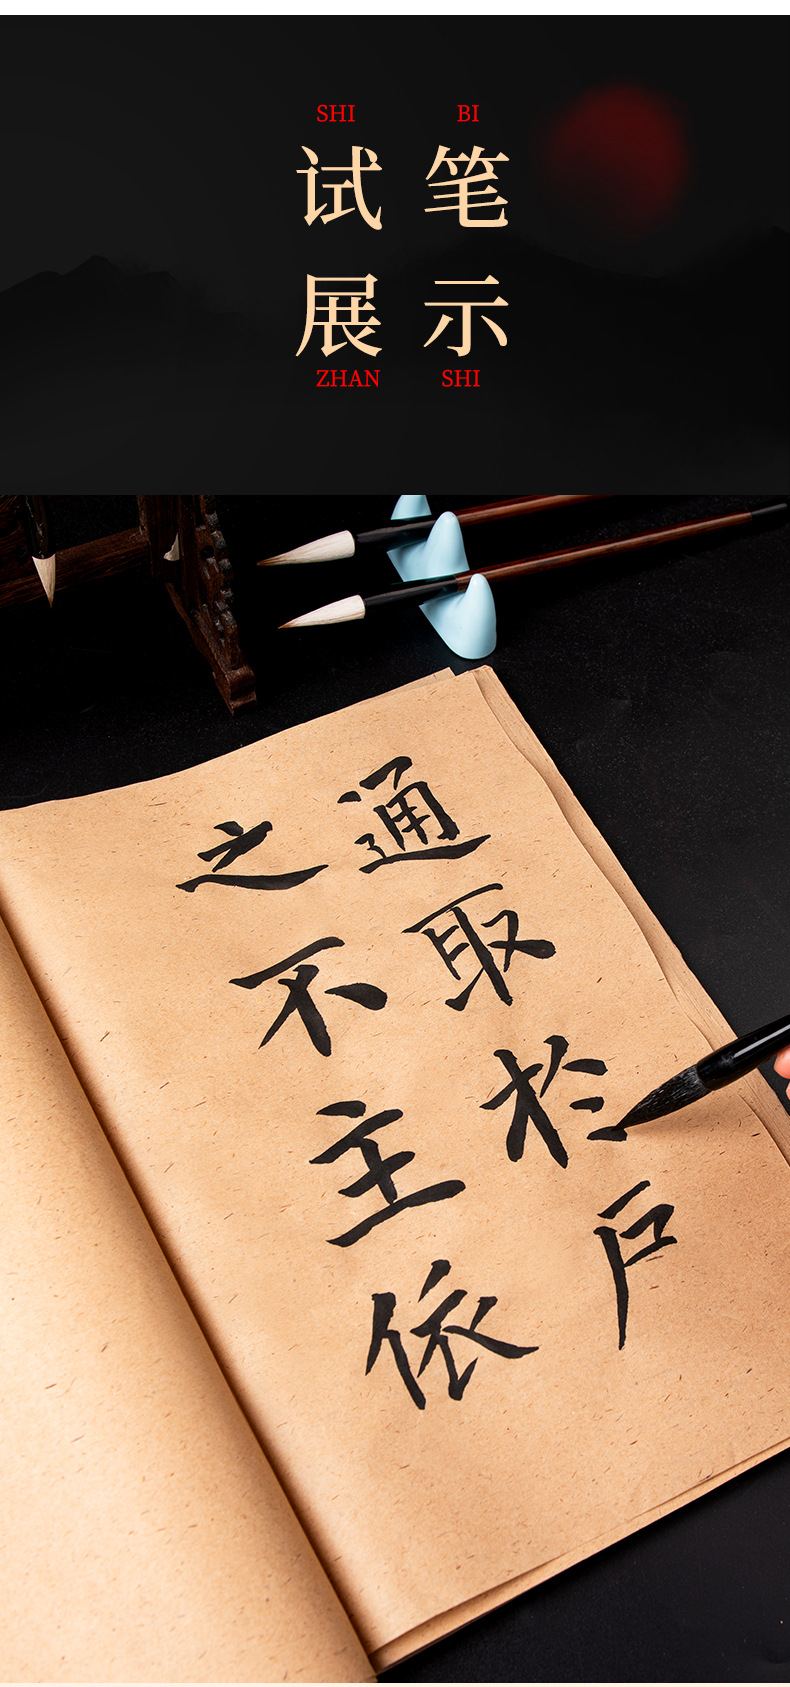 SHI BI
试笔
展示
ZHAN SHI
通取於戶
之不主依